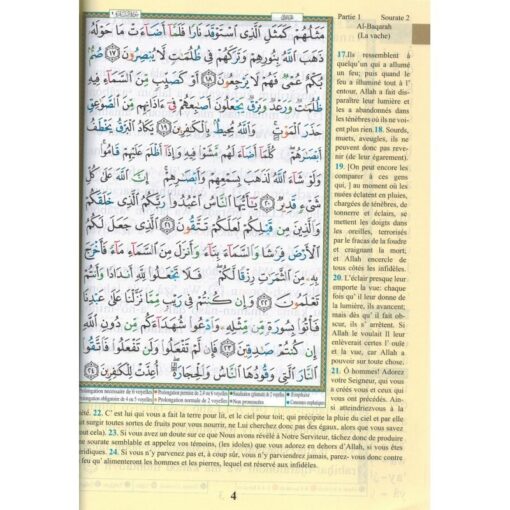 Partie 1 Sourate 2
Al-Baqarah
(La vache)
مَثَلُهُمْ كَمَثَلِ ٱلَّذِى ٱسْتَوْقَدَ نَارًا فَلَمَّآ أَضَآءَتْ مَا حَوْلَهُۥ
ذَهَبَ ٱللَّهُ بِنُورِهِمْ وَتَرَكَهُمْ فِى ظُلُمَٰتٍ لَّا يُبْصِرُونَ ١٧ صُمٌّۢ
بُكْمٌ عُمْىٌ فَهُمْ لَا يَرْجِعُونَ ١٨ أَوْ كَصَيِّبٍ مِّنَ ٱلسَّمَآءِ فِيهِ
ظُلُمَٰتٌ وَرَعْدٌ وَبَرْقٌ يَجْعَلُونَ أَصَٰبِعَهُمْ فِىٓ ءَاذَانِهِم مِّنَ ٱلصَّوَٰعِقِ
حَذَرَ ٱلْمَوْتِ وَٱللَّهُ مُحِيطٌۢ بِٱلْكَٰفِرِينَ ١٩ يَكَادُ ٱلْبَرْقُ يَخْطَفُ
أَبْصَٰرَهُمْ كُلَّمَآ أَضَآءَ لَهُم مَّشَوْا۟ فِيهِ وَإِذَآ أَظْلَمَ عَلَيْهِمْ قَامُوا۟
وَلَوْ شَآءَ ٱللَّهُ لَذَهَبَ بِسَمْعِهِمْ وَأَبْصَٰرِهِمْ إِنَّ ٱللَّهَ عَلَىٰ كُلِّ
شَىْءٍ قَدِيرٌ ٢٠ يَٰٓأَيُّهَا ٱلنَّاسُ ٱعْبُدُوا۟ رَبَّكُمُ ٱلَّذِى خَلَقَكُمْ
وَٱلَّذِينَ مِن قَبْلِكُمْ لَعَلَّكُمْ تَتَّقُونَ ٢١ ٱلَّذِى جَعَلَ لَكُمُ
ٱلْأَرْضَ فِرَٰشًا وَٱلسَّمَآءَ بِنَآءً وَأَنزَلَ مِنَ ٱلسَّمَآءِ مَآءً فَأَخْرَجَ
بِهِۦ مِنَ ٱلثَّمَرَٰتِ رِزْقًا لَّكُمْ فَلَا تَجْعَلُوا۟ لِلَّهِ أَندَادًا وَأَنتُمْ
تَعْلَمُونَ ٢٢ وَإِن كُنتُمْ فِى رَيْبٍ مِّمَّا نَزَّلْنَا عَلَىٰ عَبْدِنَا
فَأْتُوا۟ بِسُورَةٍ مِّن مِّثْلِهِۦ وَٱدْعُوا۟ شُهَدَآءَكُم مِّن دُونِ ٱللَّهِ
إِن كُنتُمْ صَٰدِقِينَ ٢٣ فَإِن لَّمْ تَفْعَلُوا۟ وَلَن تَفْعَلُوا۟ فَٱتَّقُوا۟
ٱلنَّارَ ٱلَّتِى وَقُودُهَا ٱلنَّاسُ وَٱلْحِجَارَةُ أُعِدَّتْ لِلْكَٰفِرِينَ ٢٤
17.Ils ressemblent à
quelqu'un qui a allumé
un feu; puis quand le
feu a illuminé tout à l'
entour, Allah a fait dis-
paraître leur lumière et
les a abandonnés dans
les ténèbres où ils ne voi-
ent plus rien.18. Sourds,
muets, aveugles, ils ne
peuvent donc pas reve-
nir (de leur égarement).
19. [On peut encore les
comparer à ces gens
qui, ] au moment où les
nuées éclatent en pluies,
chargées de ténèbres, de
tonnerre et éclairs, se
mettent les doigts dans
les oreilles, terrorisés
par le fracas de la foudre
et craignant la mort;
et Allah encercle de
tous côtés les infidèles.
20. L'éclair presque leur
emporte la vue: chaque
fois qu' il leur donne de
la lumière, ils avancent;
mais dès qu' il fait ob-
scur, ils s' arrêtent. Si
Allah le voulait Il leur
enlèverait certes l' ouïe
et la vue, car Allah a
pouvoir sur toute chose.
21. Ô hommes! Adorez
votre Seigneur, qui vous
a créés vous et ceux qui
vous ont précédés. Ain-
si atteindriez-vous à la
Prolongation nécessaire de 6 voyelles
Prolongation permise de 2,4 ou 6 voyelles
Nasalisation (ghunnah) de 2 voyelles
Emphatisée
Prolongation obligatoire de 4 ou 5 voyelles
Prolongation normale de 2 voyelles
Non prononcées
piété. 22. C' est lui qui vous a fait la terre pour lit, et le ciel pour toit; qui précipite la pluie du ciel et par elle
fait surgir toutes sortes de fruits pour vous nourrir, ne Lui cherchez donc pas des égaux, alors que vous savez
(tout cela). 23. Si vous avez un doute sur ce que Nous avons révélé à Notre Serviteur, tâchez donc de produire
une sourate semblable et appelez vos témoins, (les idoles) que vous adorez en dehors d'Allah, si vous êtes
véridiques. 24. Si vous n'y parvenez pas et, à coup sûr, vous n'y parviendrez jamais, parez- vous donc contre
le feu qu' alimenteront les hommes et les pierres, lequel est réservé aux infidèles.
4